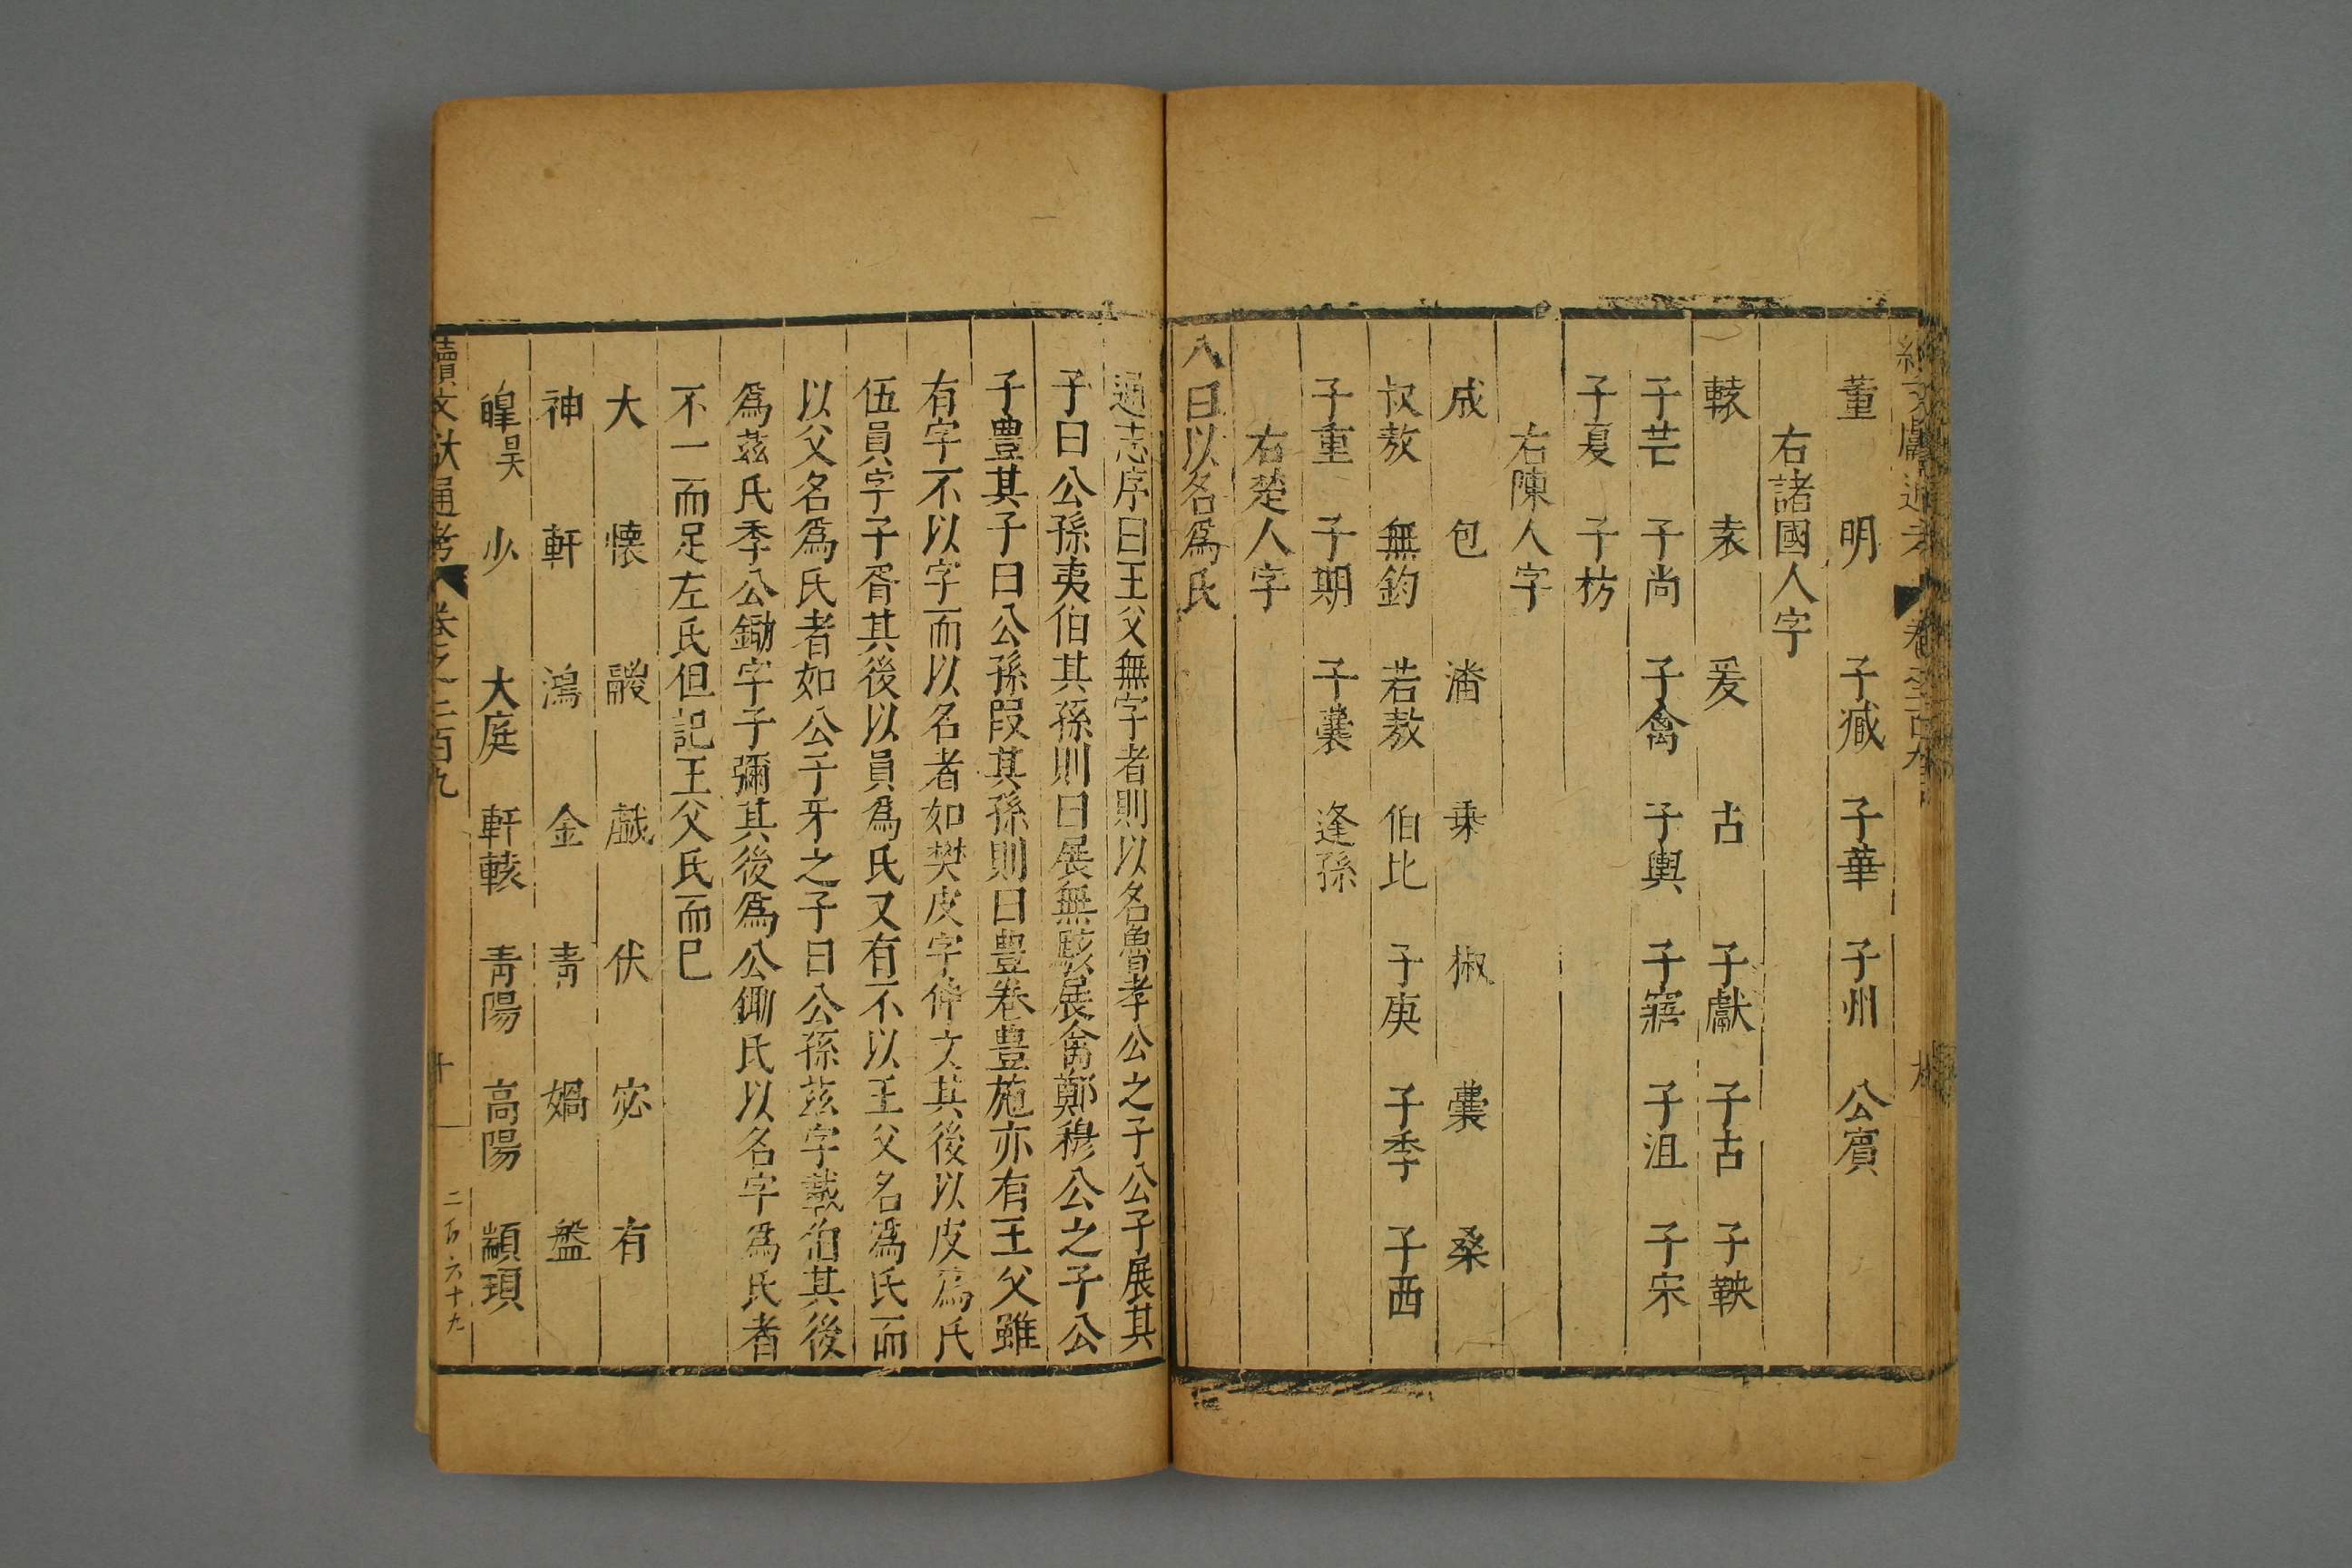 續文獻通考 卷之二百九
董 明 子臧 子華 子州 公賓
右諸國人字
轅 袁 爰 古 子獻 子古 子鞅
子芒 子尚 子禽 子輿 子寤 子沮 子宋
子夏 子枋
右陳人字
成 包 潘 乗 椒 囊 桑
叔敖 無鈞 若敖 伯比 子庚 子季 子西
子重 子期 子囊 逢孫
右楚人字
八曰以名爲氏
通志序曰王父無字者則以名魯孝公之子公子展其
子曰公孫夷伯其孫則曰展無駭展禽鄭穆公之子公
子豊其子曰公孫段其孫則曰豊卷豊施亦有王父雖
有字不以字而以名者如樊皮字仲文其後以皮爲氏
伍員字子胥其後以員爲氏又有不以王父名爲氏而
以父名爲氏者如公子牙之子曰公孫茲字戴伯其後
爲茲氏季公鋤字子彌其後爲公鋤氏以名字爲氏者
不一而足左氏但記王父氏而已
大 懐 戲 伏 宓 有
神 軒 鴻 金 青 媧 盤
皥昊 少 大庭 軒轅 青陽 高陽 顓頊
續文獻通考 卷之二百九 十 二百六十九